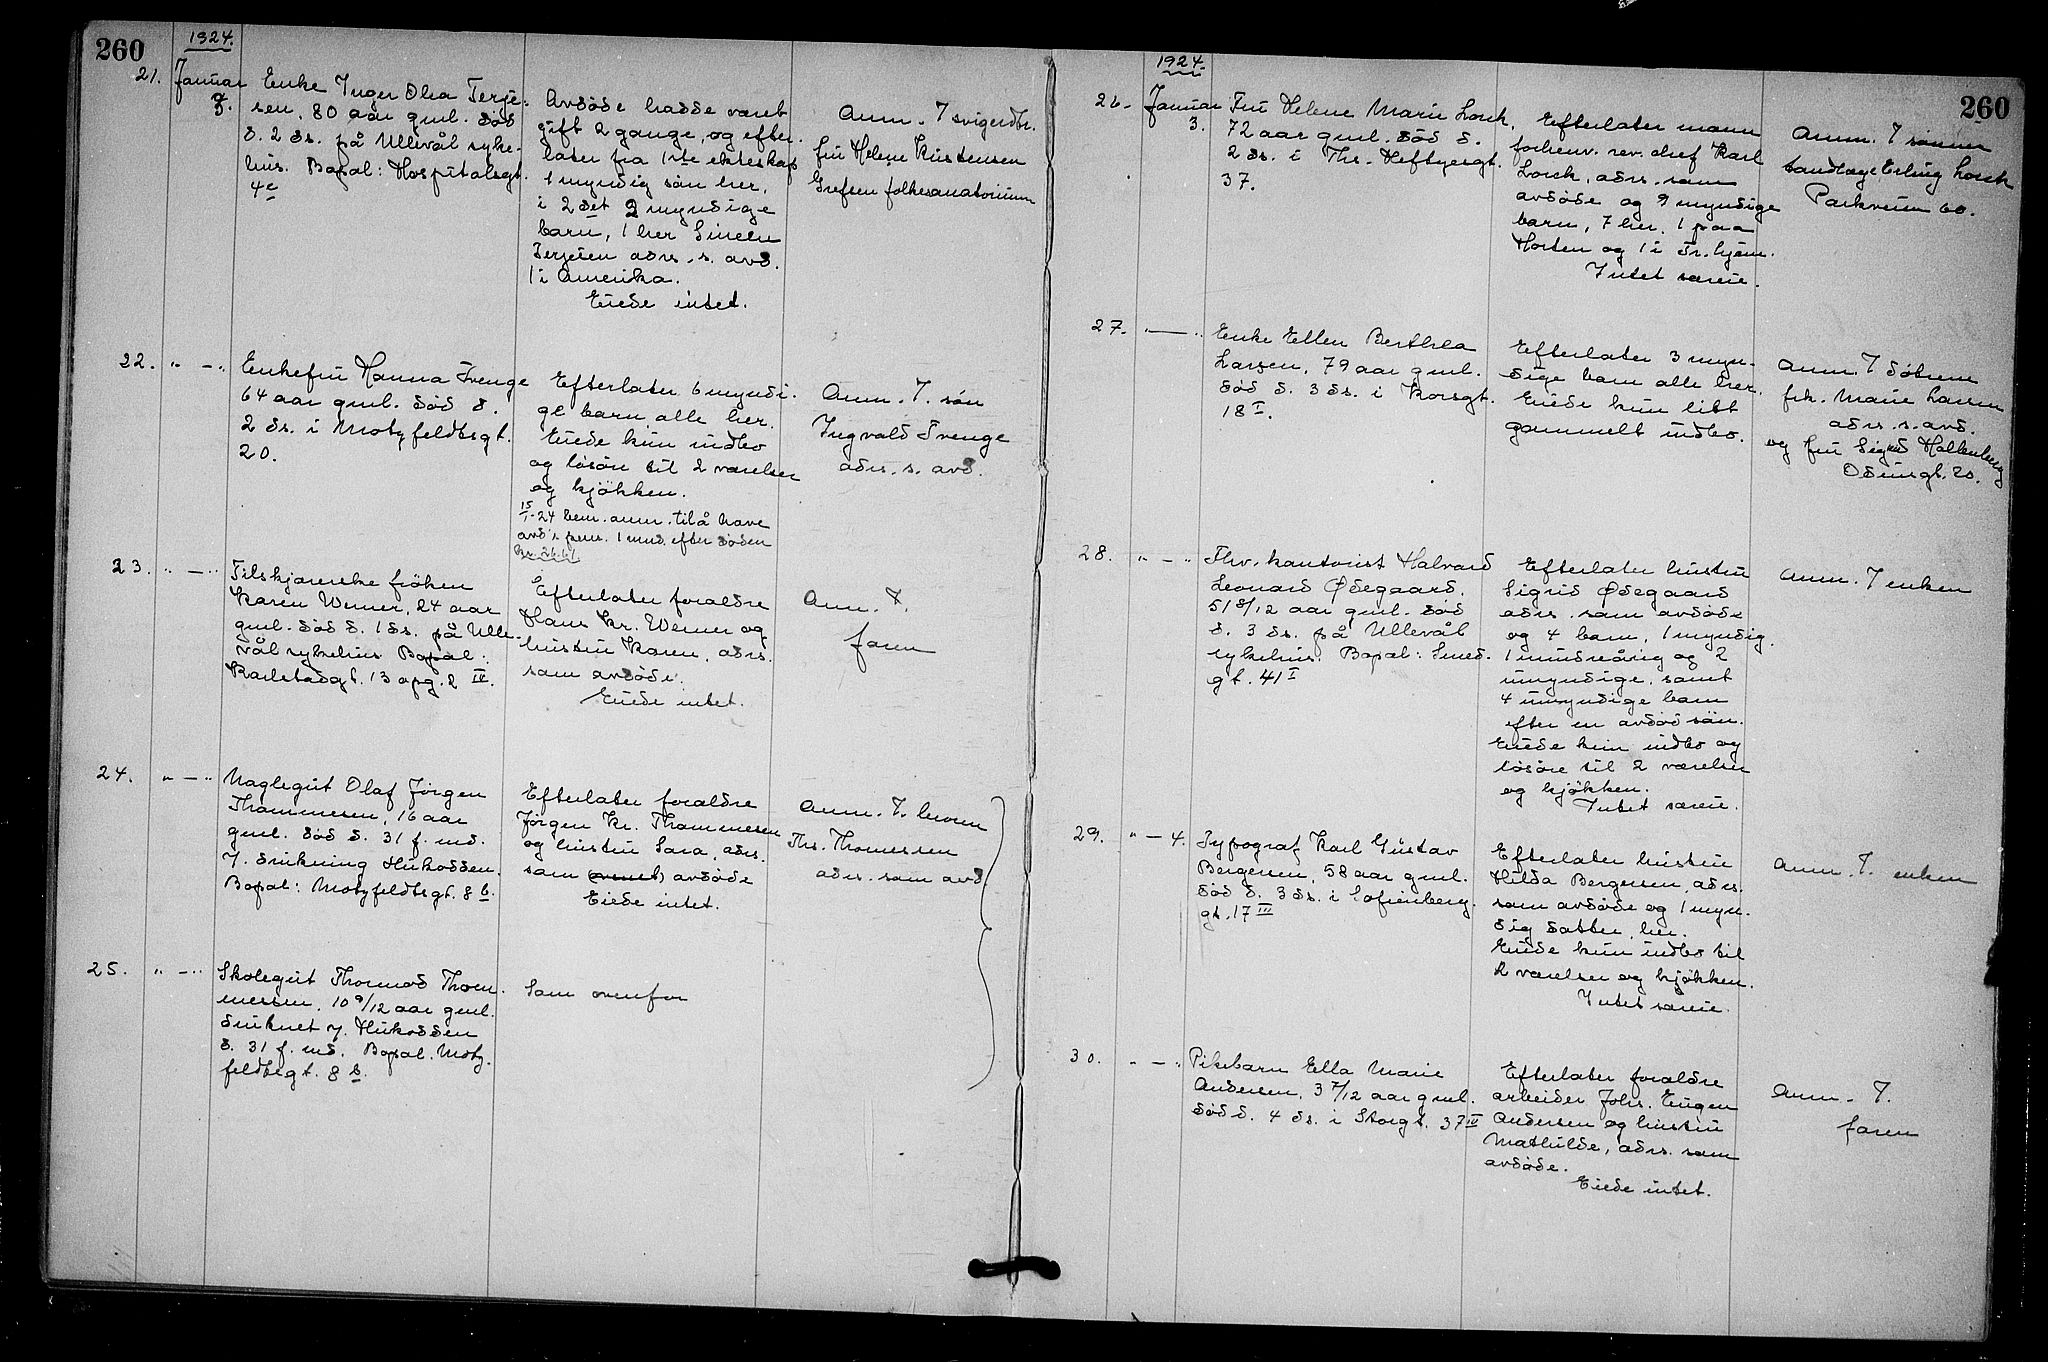 260
1924.
21. Januar 3.
Enke Inger Olea Terje-
sen, 80 aar gml. död
d. 2 ds. på Ullevål syke-
hus. Bopæl: Hospitalsgt.
4c
Avdöde hadde været
gift 2 gange, og efter-
later fra 1ste ekteskap
1 myndig sön her,
i 2det 2 myndige
barn, 1 her
Terjesen adrs. s. avd.
1 i Amerika.
Eiede intet.
Anm. 7 svigerdtr.
fru Helene Kristensen
Grefsen folkesanatorium
22. " — "
Enkefru Hanna Trenge
64 aar gml. död d.
2 ds. i Motzfeldtsgt.
20.
Efterlater 6 myndi-
ge barn, alle her.
Eiede kun indbo
og lösöre til 2 værelser
og kjökken.
15/1-24 bem. anm. til å have
avd's pens. 1 mnd. efter döden
kr. 26.61
Anm. 7. sön
Ingvald Trenge
adrs. s. avd.
23. " — "
Tilskjærerske fröken
Karen Werner, 24 aar
gml. död d. 1 ds. på Ulle-
vål sykehus Bopæl:
Karlstadgt. 13 opg. 2 IV.
Efterlater forældre
Hans Kr. Werner og
hustru Karen, adrs.
som avdöde.
Eiede intet.
Anm. 7.
faren
24. " — "
Naglegut Olaf Jörgen
Thommesen, 16 aar
gml. död d. 31 f. md.
v. drukning Hukodden.
Bopæl: Motzfeldtsgt. 8 b.
Efterlater forældre
Jörgen Kr. Thommesen
og hustru Sara, adrs.
som avdöde
Eiede intet.
Anm. 7.
Ths. Thomessen
adrs. som avd
25. " — "
Skolegut Thormod Thom-
messen, 10 9/12 aar gml.
druknet v. Hukodden
d. 31 f. md. Bopæl. Motz-
feldtsgt. 8 b.
Som ovenfor
260
1924.
26. Januar 3.
Fru Helene Marie Lorck,
72 aar gml. död d.
2 ds. i Ths. Heftyesgt.
37.
Efterlater mann
forhenv. rev. chef Karl
Lorck, adrs. som
avdöde og 9 myndige
barn, 7 her, 1 paa
Horten og 1 i Tr.hjem.
Intet særeie.
Anm. 7 sönnen
tandlæge Erling Lorck
Parkveien 60.
27. " — "
Enke Ellen Berthea
Larsen, 79 aar gml.
död d. 3 ds. i Korsgt.
18 I.
Efterlater 3 myn-
dige barn alle her.
Eiede kun litt
gammelt indbo.
Anm. 7 döttrene
frk. Marie Larsen
adrs. s. avd.
og fru Sigrid Hallenberg
Odinsgt. 20.
28. " — "
Fhv. kontorist Halvard
Leonard Ödegaard,
51 8/12 aar gml. död
d. 3 ds. på Ullevål
sykehus. Bopæl: Smed-
gt. 41 I
Efterlater hustru
Sigrid Ödegaard
adrs. som avdöde
og 4 barn, 1 myndig,
1 mindreårig og 2
umyndige, samt
4 umyndige barn
efter en avdöd sön.
Eiede kun indbo og
lösöre til 2 værelser
og kjökken.
Intet særeie.
Anm. 7 enken
29. " — 4.
Typograf Karl Gustav
Bergersen, 58 aar gml.
död d. 3 ds. i Sofienberg-
gt. 17 III
Efterlater hustru
Hilda Bergersen, adrs.
som avdöde og 1 myn-
dig datter, her.
Eiede kun indbo til
2 værelser og kjökken.
Intet særeie.
Anm. 7. enken
30. " — "
Pikebarn Ella Marie
Andersen, 3 7/12 aar gml.
död d. 4 ds. i Storgt. 37 IV
Efterlater forældre
arbeider Johs. Eugen
Andersen og hustru
Mathilde, adrs. som
avdöde.
Eiede intet.
Anm. 7.
faren